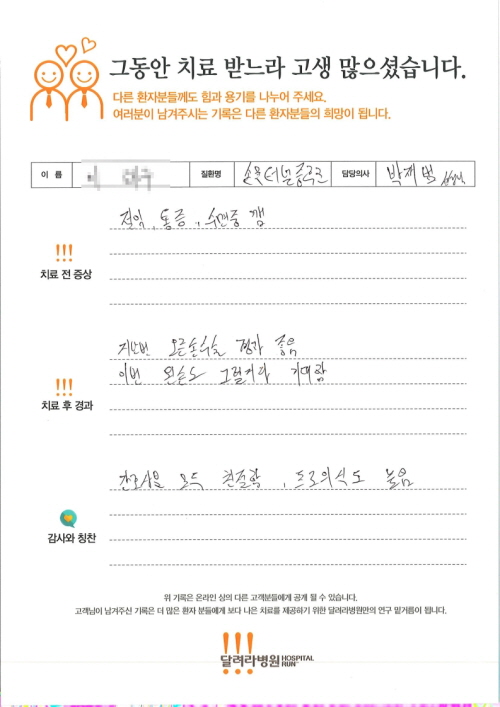 그동안 치료 받느라 고생 많으셨습니다.
다른 환자분들께도 힘과 용기를 나누어 주세요.
여러분이 남겨주시는 기록은 다른 환자분들의 희망이 됩니다.
이 름 질환명 손목터널증후군 담당의사 박재범
저림, 통증, 수면중 깸
!!!
치료 전 증상
지난번 오른손수술 경과 좋음
이번 왼손도 그럴거라 기대함
!!!
치료 후 경과
간호사분 모두 친절함, 프로의식도 높음
감사와 칭찬
위 기록은 온라인 상의 다른 고객분들에게 공개 될 수 있습니다.
고객님이 남겨주신 기록은 더 많은 환자 분들에게 보다 나은 치료를 제공하기 위한 달려라병원만의 연구 밑거름이 됩니다.
!!!
달려라병원 HOSPITAL RUN